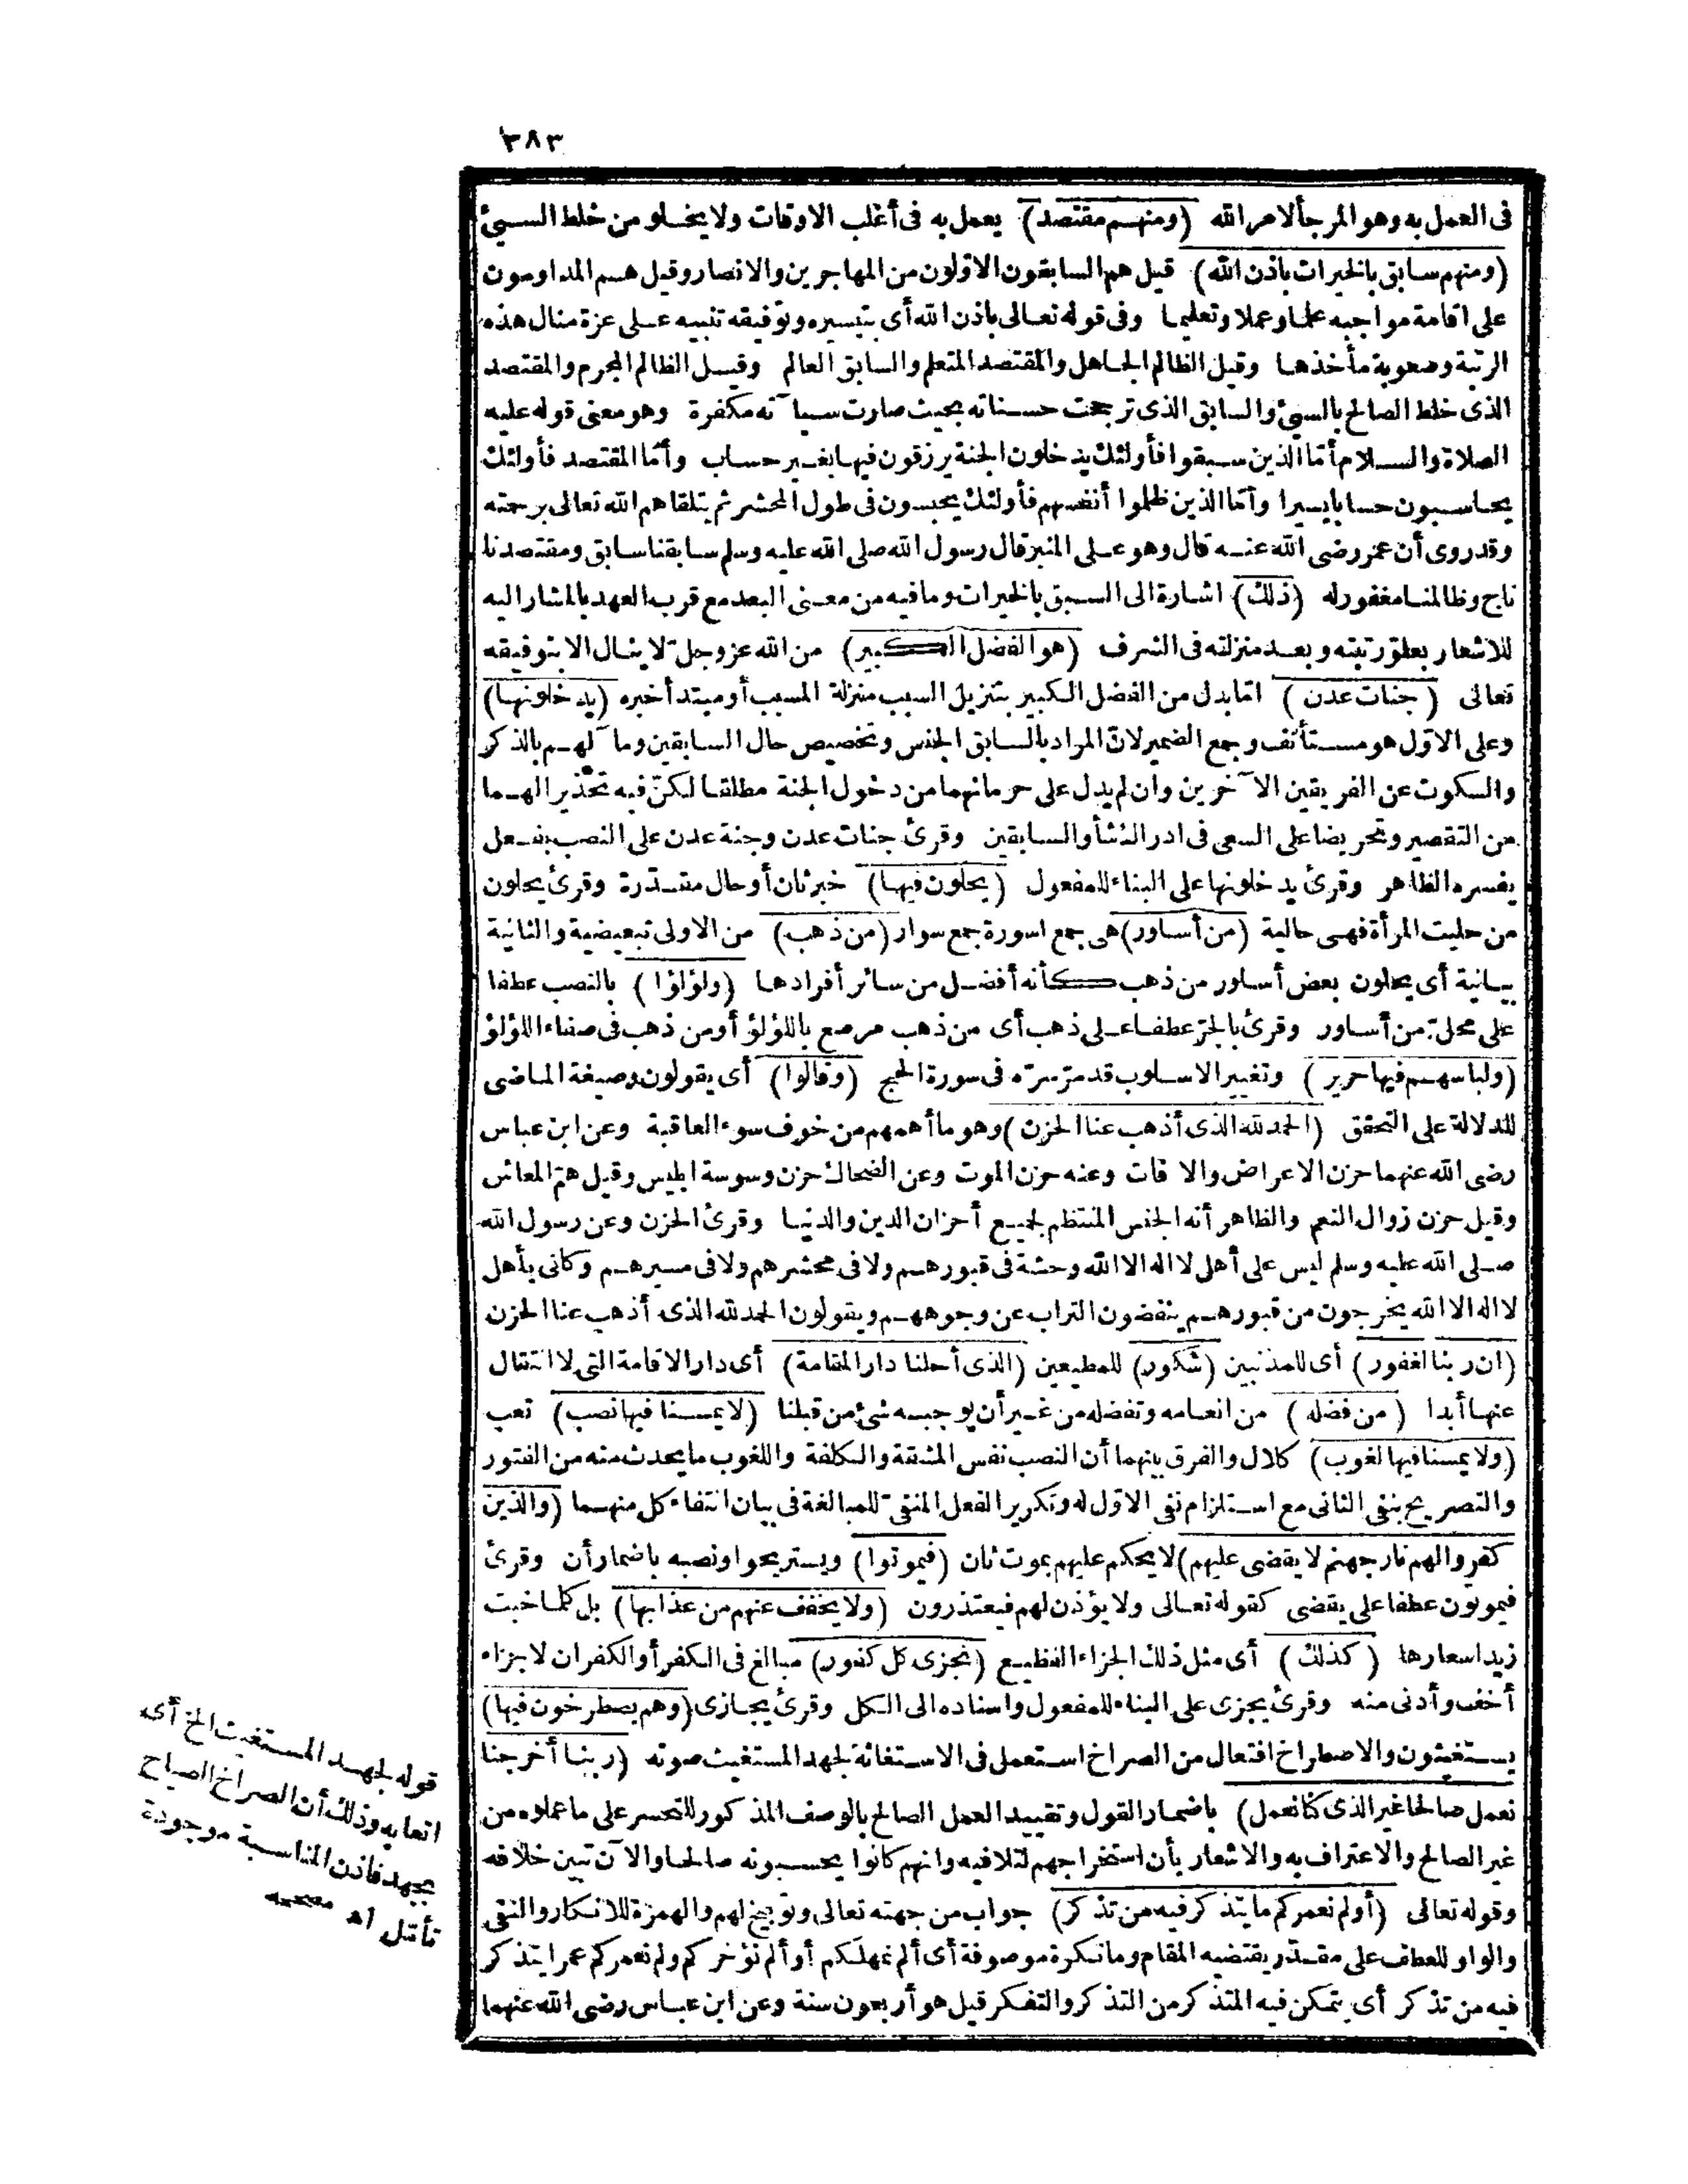 ٣٨٣
فى العمل به وهو المرجأ لامر الله (ومنهم مقتصد) يعمل به فى أغلب الاوقات ولا يخلو من خلط السيئ
(ومنهم سابق بالخيرات باذن الله) قيل هم السابقون الاوّلون من المهاجرين والانصار وقيل هم المداومون
على اقامة مواجبه علما وعملا وتعليما وفى قوله تعالى باذن الله أى بتيسيره وتوفيقه تنبيه على عزة منال هذه
الرتبة وصعوبة مأخذها وقيل الظالم الجاهل والمقتصد المتعلم والسابق العالم وقيل الظالم المجرم والمقتصد
الذى خلط الصالح بالسيئ والسابق الذى ترجحت حسناته بحيث صارت سيآته مكفرة وهو معنى قوله عليه
الصلاة والسلام أمّا الذين سبقوا فأولئك يدخلون الجنة يرزقون فيها بغير حساب وأمّا المقتصد فأولئك
يحاسبون حسابا يسيرا وأمّا الذين ظلموا أنفسهم فأولئك يحبسون فى طول المحشر ثم يتلقاهم الله تعالى برحمته
وقد روى أن عمر رضى الله عنه قال وهو على المنبر قال رسول الله صلى الله عليه وسلم سابقنا سابق ومقتصدنا
ناج وظالمنا مغفور له (ذلك) اشارة الى السبق بالخيرات وما فيه من معنى البعد مع قرب العهد بالمشار اليه
للاشعار بعلوّ رتبته وبعد منزلته فى الشرف (هو الفضل الكبير) من الله عز وجلّ لا ينال الا بتوفيقه
تعالى (جنات عدن) امّا بدل من الفضل الكبير بتنزيل السبب منزلة المسبب أو مبتدأ خبره (يدخلونها)
وعلى الاوّل هو مستأنف وجمع الضمير لانّ المراد بالسابق الجنس وتخصيص حال السابقين ومآلهم بالذكر
والسكوت عن الفريقين الآخرين وان لم يدل على حرمانهما من دخول الجنة مطلقا لكنّ فيه تحذيرا لهما
من التقصير وتحريضا على السعى فى ادراك شأو السابقين وقرئ جنات عدن وجنة عدن على النصب بفعل
يفسره الظاهر وقرئ يدخلونها على البناء للمفعول (يحلون فيها) خبر ثان أو حال مقدّرة وقرئ يحلون
من حليت المرأة فهى حالية (من أساور) هى جمع اسورة جمع سوار (من ذهب) من الاولى تبعيضية والثانية
بيانية أى يحلون بعض أساور من ذهب كأنه أفضل من سائر أفرادها (ولؤلؤا) بالنصب عطفا
على محل من أساور وقرئ بالجرّ عطفا على ذهب أى من ذهب مرصع باللؤلؤ أو من ذهب فى صفاء اللؤلؤ
(ولباسهم فيها حرير) وتغيير الاسلوب قد مرّ سرّه فى سورة الحج (وقالوا) أى يقولون وصيغة الماضى
للدلالة على التحقق (الحمد لله الذى أذهب عنا الحزن) وهو ما أهمهم من خوف سوء العاقبة وعن ابن عباس
رضى الله عنهما حزن الاعراض والآفات وعنه حزن الموت وعن الضحاك حزن وسوسة ابليس وقيل همّ المعاش
وقيل حزن زوال النعم والظاهر أنه الجنس المنتظم لجميع أحزان الدين والدنيا وقرئ الحزن وعن رسول الله
صلى الله عليه وسلم ليس على أهل لا اله الا الله وحشة فى قبورهم ولا فى محشرهم ولا فى مسيرهم وكأنى بأهل
لا اله الا الله يخرجون من قبورهم ينفضون التراب عن وجوههم ويقولون الحمد لله الذى أذهب عنا الحزن
(ان ربنا لغفور) أى للمذنبين (شكور) للمطيعين (الذى أحلنا دار المقامة) أى دار الاقامة التى لا انتقال
عنها أبدا (من فضله) من انعامه وتفضله من غير أن يوجبه شئ من قبلنا (لا يمسنا فيها نصب) تعب
(ولا يمسنا فيها لغوب) كلال والفرق بينهما أن النصب نفس المشقة والكلفة واللغوب ما يحدث منه من الفتور
والتصريح بنفى الثانى مع استلزام نفى الاوّل له وتكرير الفعل المنفىّ للمبالغة فى بيان انتفاء كل منهما (والذين
كفروا لهم نار جهنم لا يقضى عليهم) لا يحكم عليهم بموت ثان (فيموتوا) ويستريحوا ونصبه باضمار أن وقرئ
فيموتون عطفا على يقضى كقوله تعالى ولا يؤذن لهم فيعتذرون (ولا يخفف عنهم من عذابها) بل كلما خبت
زيد اسعارها (كذلك) أى مثل ذلك الجزاء الفظيع (نجزى كل كفور) مبالغ فى الكفر أو الكفران لا جزاء
أخف وأدنى منه وقرئ يجزى على البناء للمفعول واسناده الى الكل وقرئ يجازى (وهم يصطرخون فيها)
يستغيثون والاصطراخ افتعال من الصراخ استعمل فى الاستغاثة لجهد المستغيث صوته (ربنا أخرجنا
نعمل صالحا غير الذى كنا نعمل) باضمار القول وتقييد العمل الصالح بالوصف المذكور للتحسر على ما عملوه من
غير الصالح والاعتراف به والاشعار بأن استخراجهم لتلافيه وانهم كانوا يحسبونه صالحا والآن تبين خلافه
وقوله تعالى (أو لم نعمركم ما يتذكر فيه من تذكر) جواب من جهته تعالى وتوبيخ لهم والهمزة للانكار والنفى
والواو للعطف على مقدّر يقتضيه المقام وما نكرة موصوفة أى ألم نمهلكم أو ألم نؤخركم ولم نعمركم عمرا يتذكر
فيه من تذكر أى يتمكن فيه المتذكر من التذكر والتفكر قيل هو أربعون سنة وعن ابن عباس رضى الله عنهما
قوله لجهد المستغيث الخ أى
اتعابه وذلك أن الصراخ الصياح
بجهد فاذن المناسبة موجودة
تأمّل اه مصححه